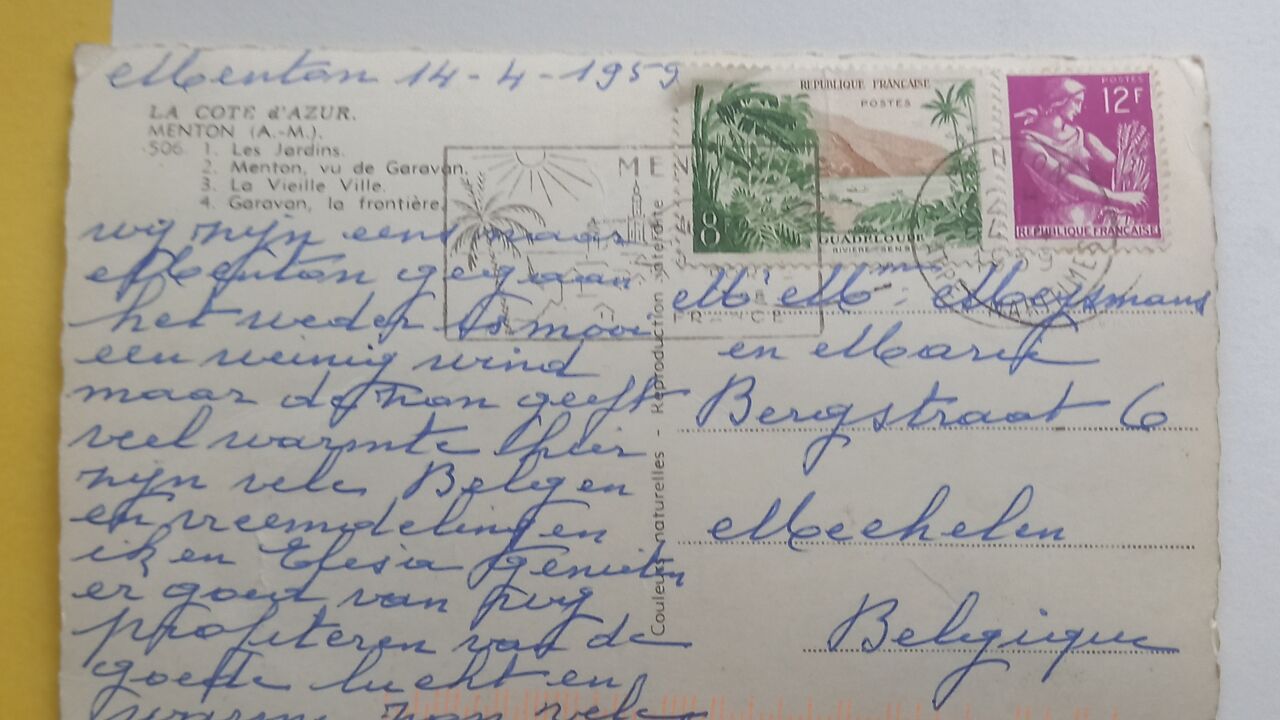 Menton 14-4-1959
LA COTE d'AZUR.
MENTON (A.-M.).
506. 1. Les Jardins.
2. Menton, vu de Garavan.
3. La Vieille Ville.
4. Garavan, la frontière.
wij zijn eens naar
Menton gegaan
het weder is mooi
een weinig wind
maar de zon geeft
veel warmte hier
zijn vele Belgen
en vreemdelingen
ik en Elesia genieten
er goed van wij
profiteren van de
goede lucht en
warm zon vele
Couleurs naturelles - Reproduction interdite
REPUBLIQUE FRANÇAISE
POSTES
8
GUADELOUPE
RIVIÈRE SENS
POSTES
12F
REPUBLIQUE FRANÇAISE
MEN
FRANCE
Mr Mme Moysmans
en Marie
Bergstraat 6
Mechelen
Belgique